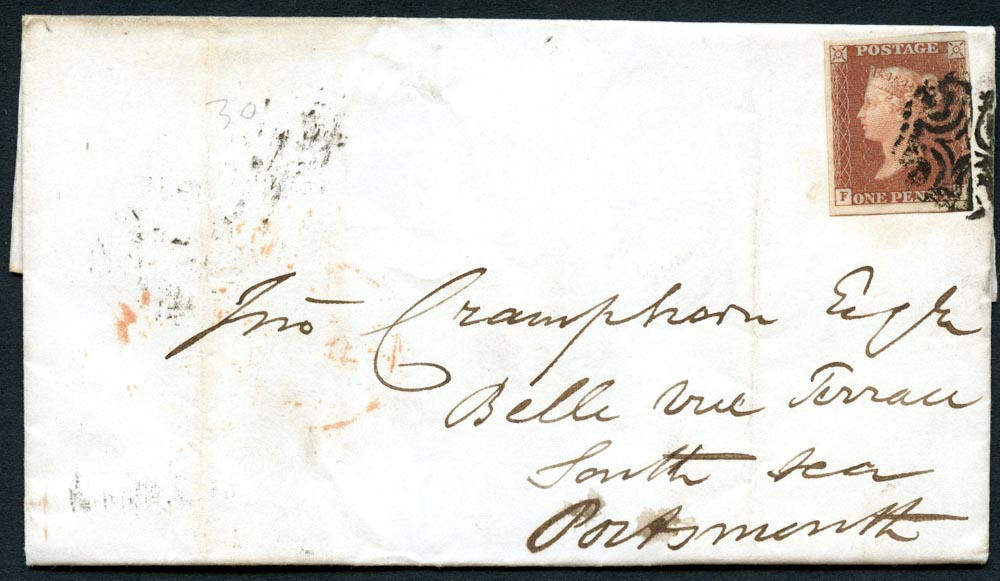 POSTAGE
F ONE PEN
30
Jno Cramphorn Esqre
Belle Vue Terrace
South sea
Portsmouth